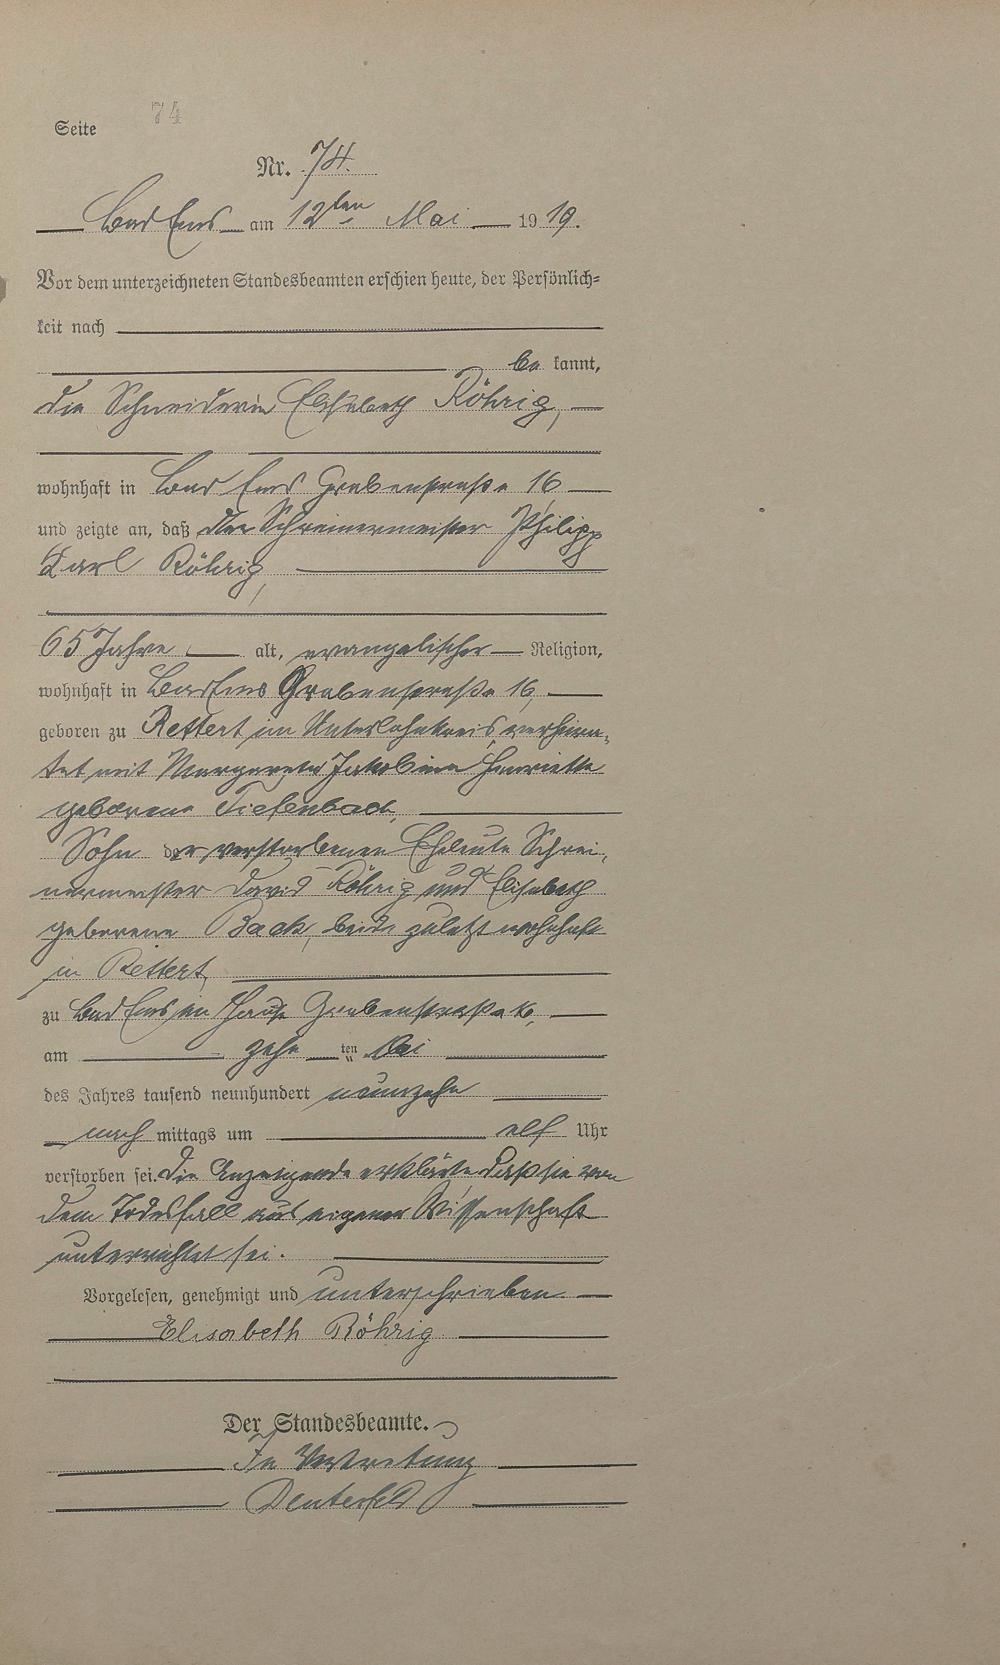 Seite 74
Nr. 74.
Bad Ems am 12ten Mai 1919.
Vor dem unterzeichneten Standesbeamten erschien heute, der Persönlich-
keit nach
be kannt,
die Schneiderin Elisabeth Röhrig,
wohnhaft in Bad Ems Grabenstraße 16
und zeigte an, daß der Schreinermeister Philipp
Karl Röhrig,
65 Jahre alt, evangelischer Religion,
wohnhaft in Bad Ems Grabenstraße 16,
geboren zu Rettert im Unterlahnkreis, verheira-
tet mit Margareta Jakobine Henriette
geborene Tiefenbach,
Sohn der verstorbenen Eheleute Schrei-
nermeister David Röhrig und Elisabeth
geborene Back, beide zuletzt wohnhaft
in Rettert,
zu Bad Ems im Hause Grabenstraße 16,
am zehn ten Mai
des Jahres tausend neunhundert neunzehn
nach mittags um elf Uhr
verstorben sei. Die Anzeigende erklärte daß sie von
dem Todesfall aus eigener Wissenschaft
unterrichtet sei.
Vorgelesen, genehmigt und unterschrieben
Elisabeth Röhrig
Der Standesbeamte.
In Vertretung